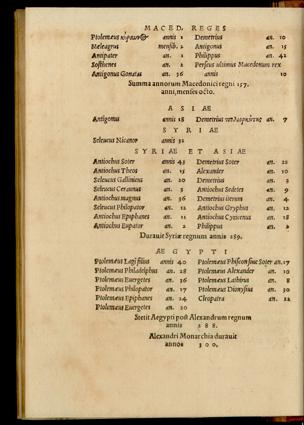 MACED. REGES
Ptolemæus annis 1 Demetrius an. 10
Meleagrus mensib. 2 Antigonus an. 15
Antipater an. 1 Philippus an. 42
Sosthenes an. 2 Perseus ultimus Macedonum rex
Antigonus Gonatas an. 36 annis 10
Summa annorum Macedonici regni 157.
anni, menses octo.
ASIAE
Antigonus annis 18 Demetrius πολιορκητὴς an. 7
SYRIAE
Seleucus Nicanor annis 32
SYRIAE ET ASIAE
Antiochus Soter annis 43 Demetrius Soter an. 22
Antiochus Theos an. 15 Alexander an. 10
Seleucus Gallinicus an. 20 Demetrius an. 3
Seleucus Ceraunus an. 3 Antiochus Sedetes an. 9
Antiochus magnus an. 36 Demetrius iterum an. 4
Seleucus Philopator an. 12 Antiochus Gryphus an. 12
Antiochus Epiphanes an. 11 Antiochus Cyzicenus an. 18
Antiochus Eupator an. 2 Philippus an. 2
Durauit Syriæ regnum annis 289.
AEGYPTI
Ptolemæus Lagi filius annis 40 Ptolemæus Phiscon siue Soter an. 17
Ptolemæus Philadelphus an. 28 Ptolemæus Alexander an. 10
Ptolemæus Euergetes an. 26 Ptolemæus Lathirus an. 8
Ptolemæus Philopator an. 17 Ptolemæus Dionysius an. 30
Ptolemæus Epiphanes an. 24 Cleopatra an. 22
Ptolemæus Euergetes an. 20
Stetit Aegypti post Alexandrum regnum
annis 288.
Alexandri Monarchia durauit
annos 300.